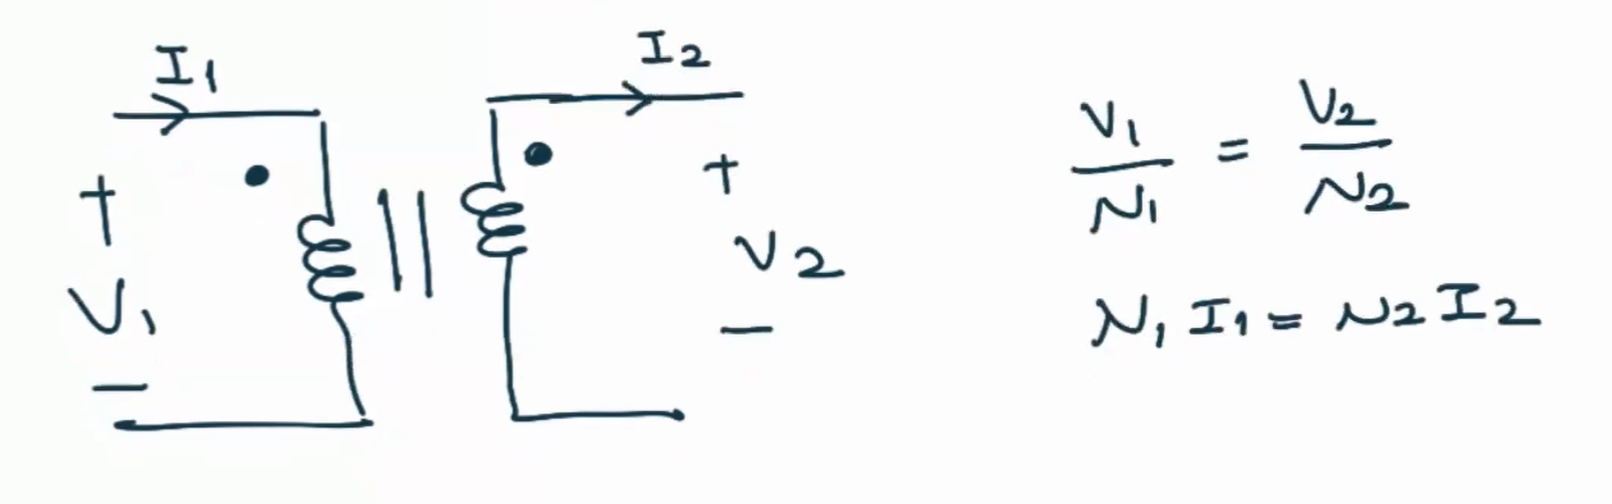 I1
I2
+
V1
−
+
V2
−
V1/N1 = V2/N2
N1 I1 = N2 I2